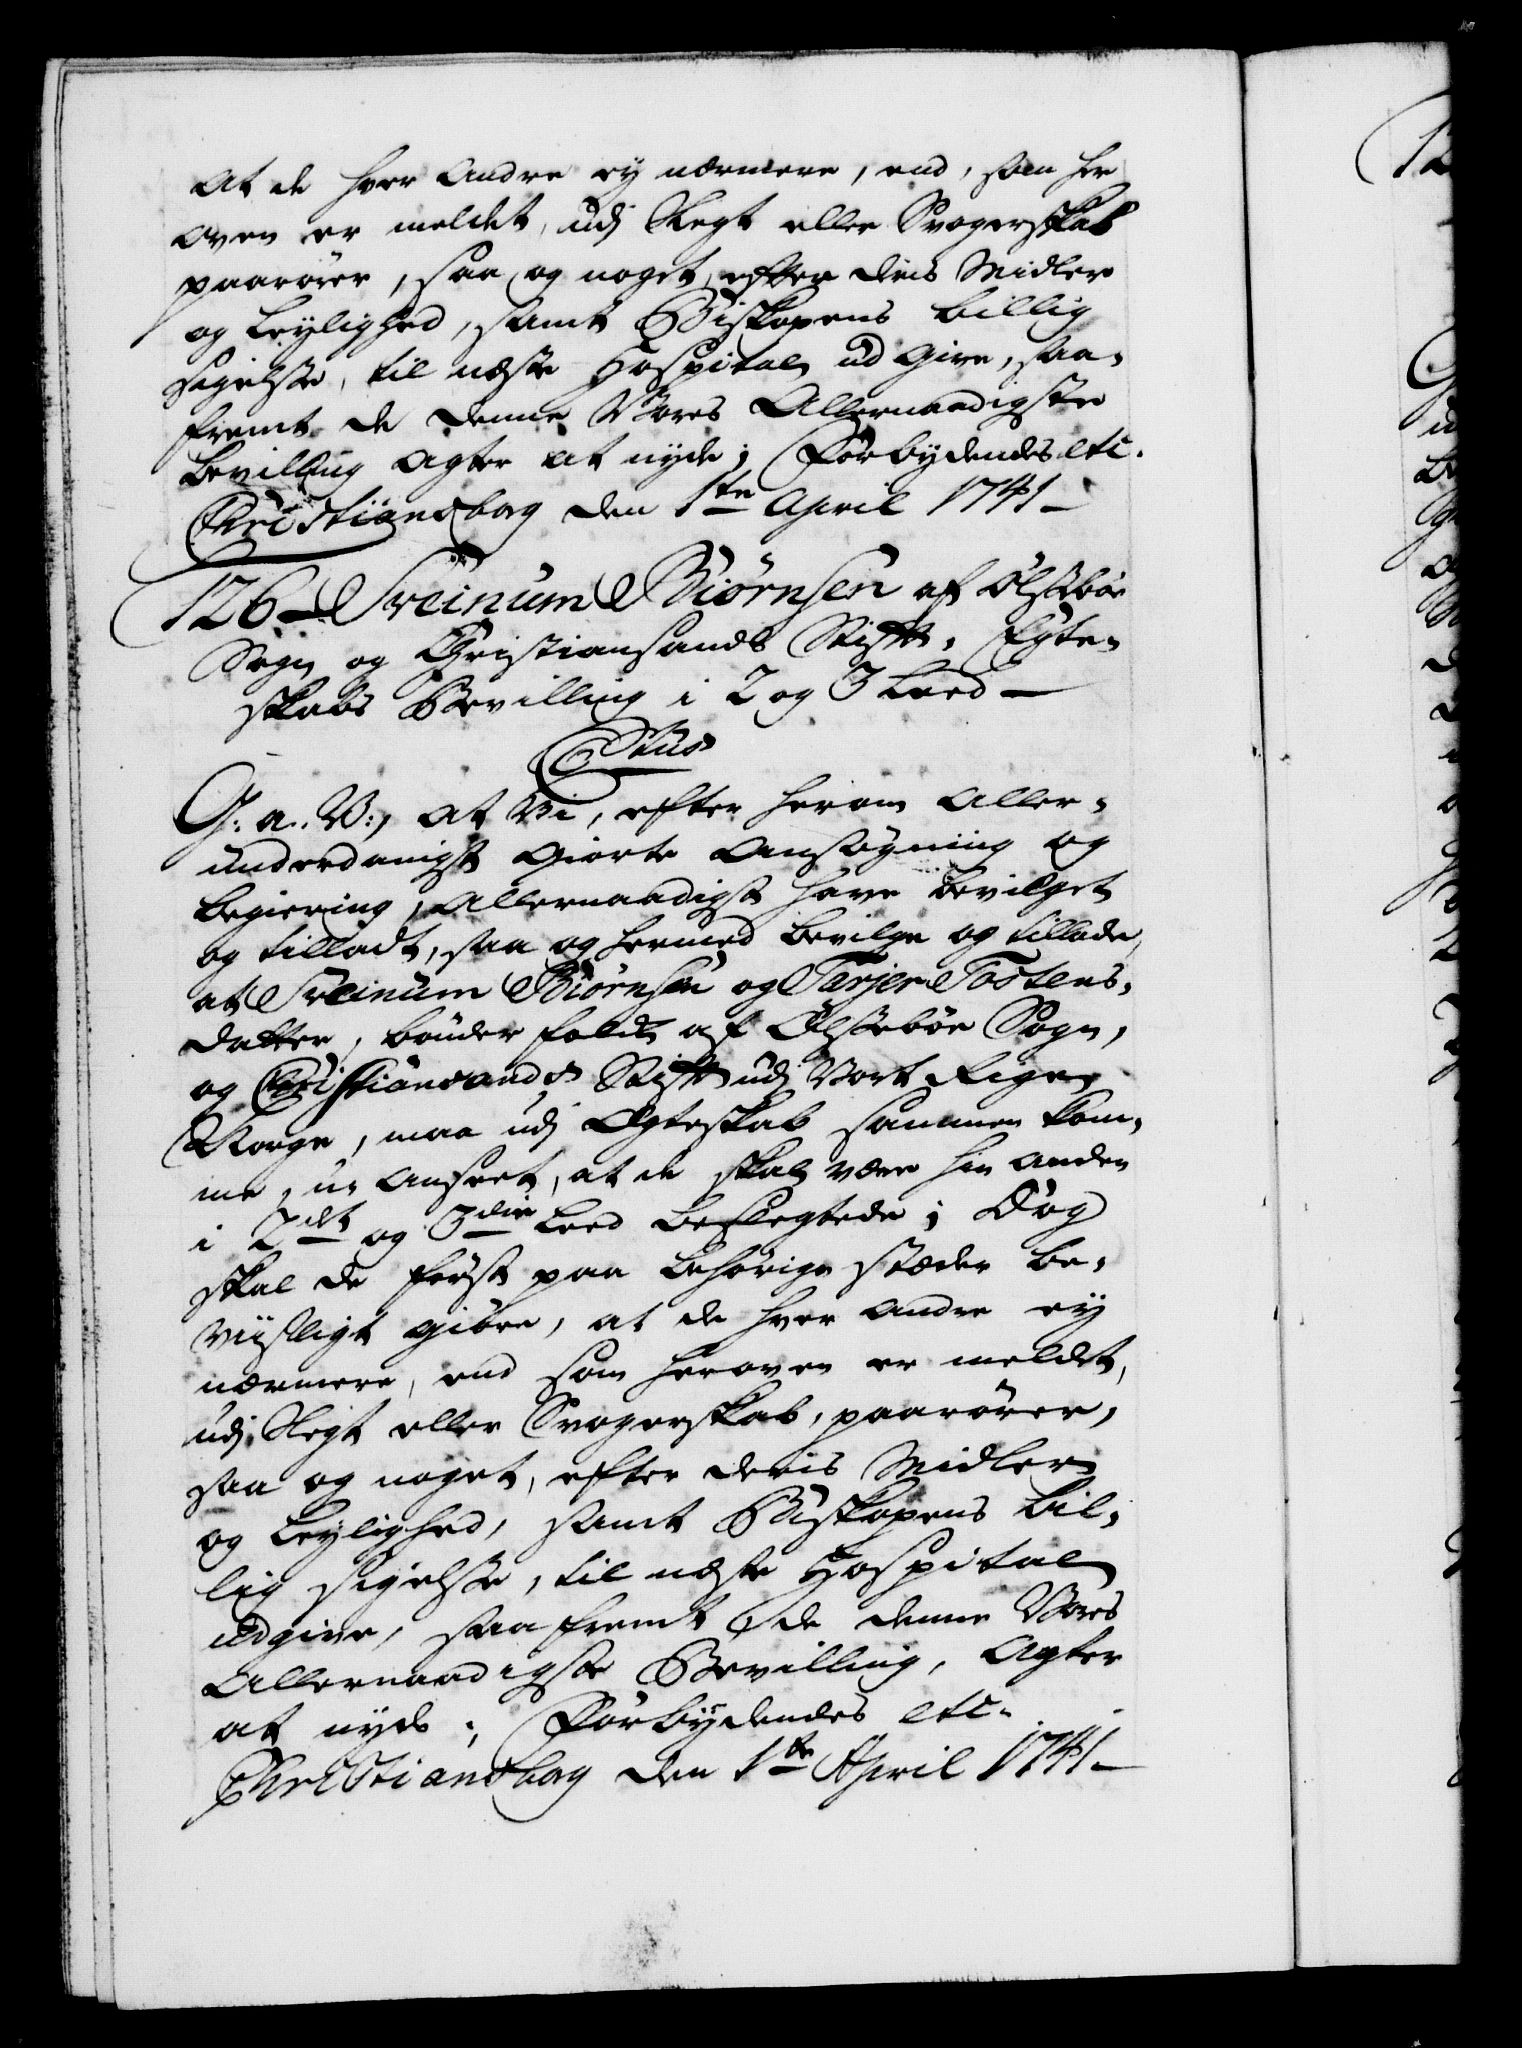 at de hver andre ey nærmere, end, som her
oven er meldet, udj Slegt eller Svogerskab
paarører, saa og noget, efter deris Midler
og Leylighed, samt Biskopens billig
sigelse, til næste Hospital ud give, saa-
fremt de denne Vores Allernaadigste
Bevilling agter at nyde; Forbydendes etc.
Christiansborg den 1ste April 1741
126 Sveinum Biørnsen af Ølsebøe
Sogn og Christiansands Stift. Egte-
skabs Bevilling i 2 og 3 Leed
C Vtus
G: a. V:, at Vi, efter herom aller-
underdanigst giorte Ansøgning og
begiering, Allernaadigst have bevilget
og tilladt, saa og hermed bevilge og tillade,
at Sveinum Biørnsen og Tarjer Tostens-
datter, bønder folck af Ølsebøe Sogn,
og Christiansands Stift udj Vort Rige
Norge, maa udj Ægteskab sammen kom-
me, u-anseet, at de skal være hin anden
i 2det og 3die Leed beslegtede; Dog
skal de først paa behørige stæder be-
viisligt giøre, at de hver andre ey
nærmere, end som heroven er meldet,
udj Slegt eller Svogerskab, paarører,
saa og noget, efter deris Midler
og Leylighed, samt Biskopens bil-
lig sigelse, til næste Hospital
udgive, saa fremt de denne Vores
Allernaadigste Bevilling, agter
at nyde; Forbydendes etc.
Christiansborg den 1te April 1741